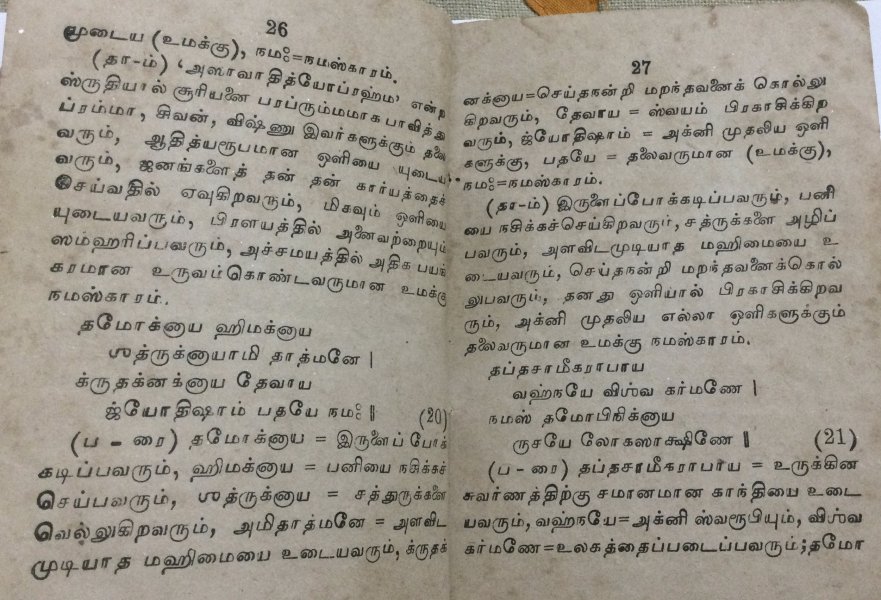 26
முடைய (உமக்கு), நமஃ=நமஸ்காரம்.
(தா-ம்) 'அஸாவாதித்யோப்ரஹ்ம' என்ற
ஸ்ருதியால் சூரியனை பரப்ரும்மமாக பாவித்து
ப்ரம்மா, சிவன், விஷ்ணு இவர்களுக்கும் தலை
வரும், ஆதித்யரூபமான ஒளியை யுடைய
வரும், ஜனங்களைத் தன் தன் கார்யத்தைச்
செய்வதில் ஏவுகிறவரும், மிகவும் ஒளியை
யுடையவரும், பிரளயத்தில் அனைவற்றையும்
ஸம்ஹரிப்பவரும், அச்சமயத்தில் அதிக பயங்
கரமான உருவம்கொண்டவருமான உமக்கு
நமஸ்காரம்.
தமோக்னாய ஹிமக்னாய
ஶத்ருக்னாயாமி தாத்மனே |
க்ருதக்னக்னாய தேவாய
ஜ்யோதிஷாம் பதயே நமஃ ‖ (20)
(ப - ரை) தமோக்னாய = இருளைப் போக்
கடிப்பவரும், ஹிமக்னாய = பனியை நசிக்கச்
செய்பவரும், ஶத்ருக்னாய = சத்துருக்களை
வெல்லுகிறவரும், அமிதாத்மனே = அளவிட
முடியாத மஹிமையை உடையவரும், க்ருதக்
27
னக்னாய=செய்தநன்றி மறந்தவனைக் கொல்லு
கிறவரும், தேவாய = ஸ்வயம் பிரகாசிக்கிற
வரும், ஜ்யோதிஷாம் = அக்னி முதலிய ஒளி
களுக்கு, பதயே = தலைவருமான (உமக்கு),
நமஃ=நமஸ்காரம்.
(தா-ம்) இருளைப்போக்கடிப்பவரும், பனி
யை நசிக்கச்செய்கிறவரும், சத்ருக்களை அழிப்
பவரும், அளவிடமுடியாத மஹிமையை உ
டையவரும், செய்தநன்றி மறந்தவனைக்கொல்
லுபவரும், தனது ஒளியால் பிரகாசிக்கிறவ
ரும், அக்னி முதலிய எல்லா ஒளிகளுக்கும்
தலைவருமான உமக்கு நமஸ்காரம்.
தப்தசாமீகராபாய
வஹ்நயே விஶ்வ கர்மணே |
நமஸ் தமோபிநிக்னாய
ருசயே லோகஸாக்ஷிணே ‖ (21)
(ப - ரை) தப்தசாமீகராபாய = உருக்கின
சுவர்ணத்திற்கு சமானமான காந்தியை உடை
யவரும், வஹ்நயே=அக்னி ஸ்வரூபியும், விஶ்வ
கர்மணே=உலகத்தைப்படைப்பவரும்; தமோ